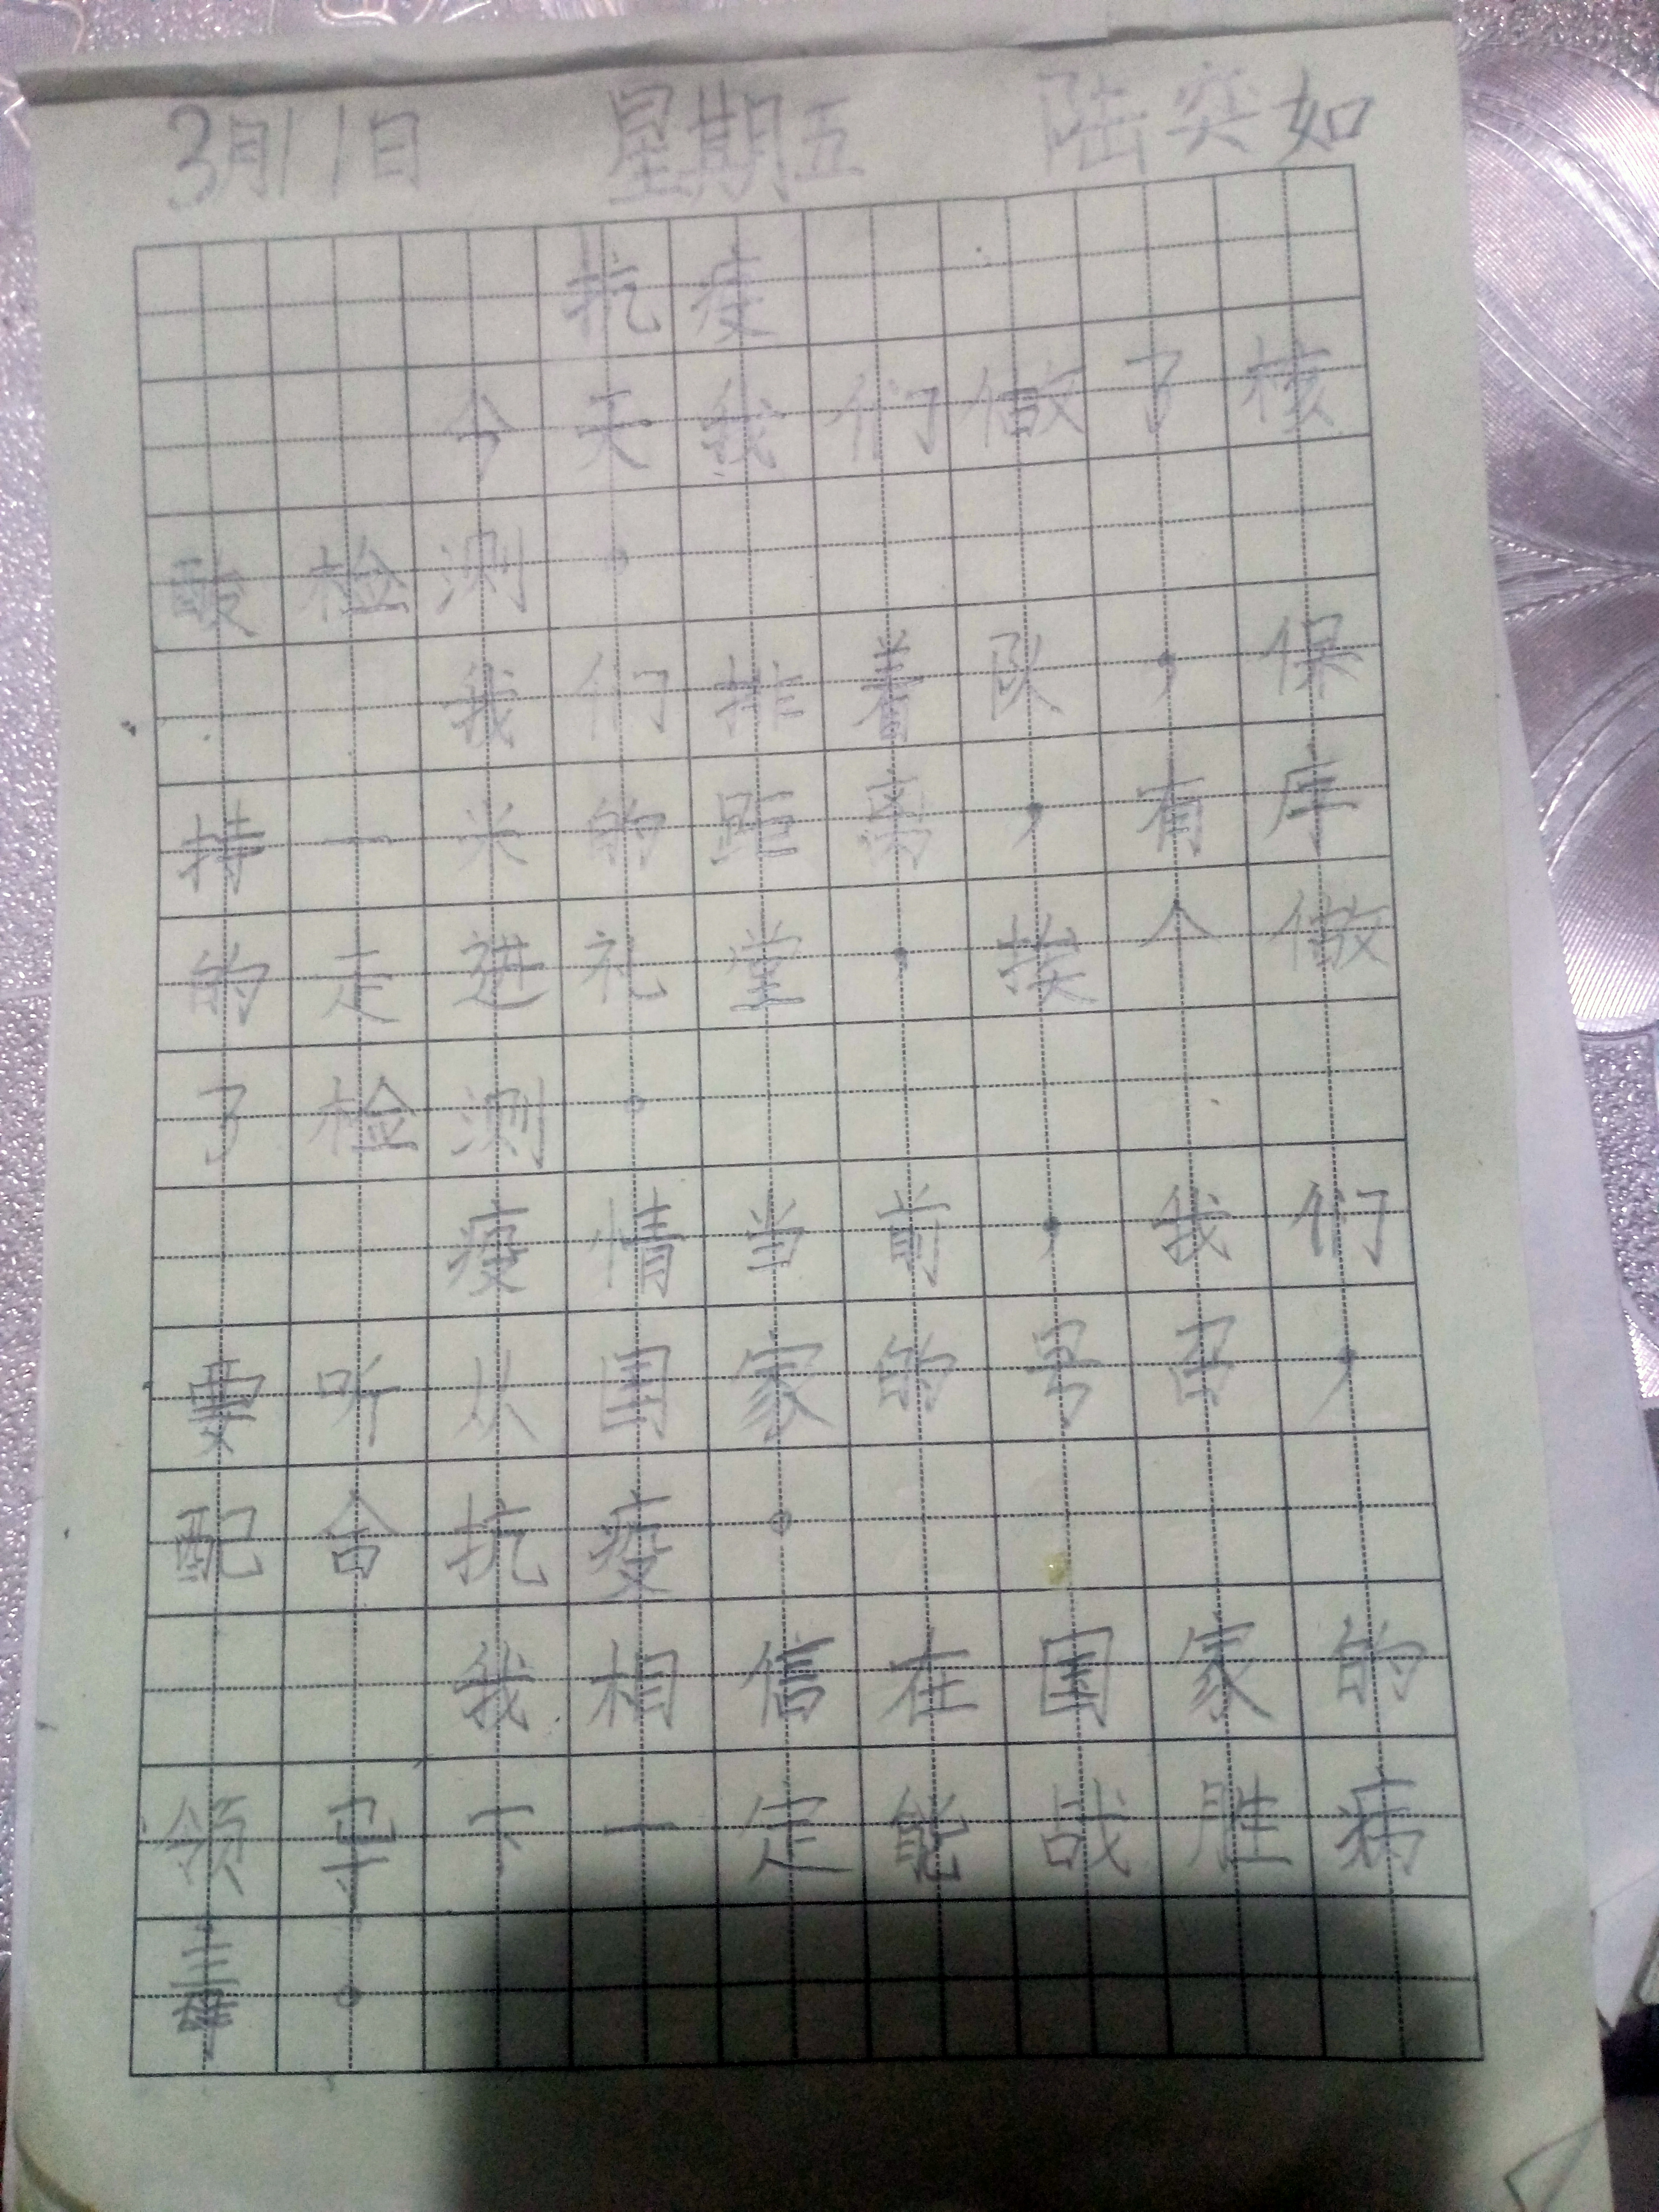 3月11日 星期五 陆奕如
抗疫
今天我们做了核
酸检测。
我们排着队,保
持一米的距离,有序
的走进礼堂,挨个做
了检测。
疫情当前,我们
要听从国家的号召,
配合抗疫。
我相信在国家的
领导下一定能战胜病
毒。